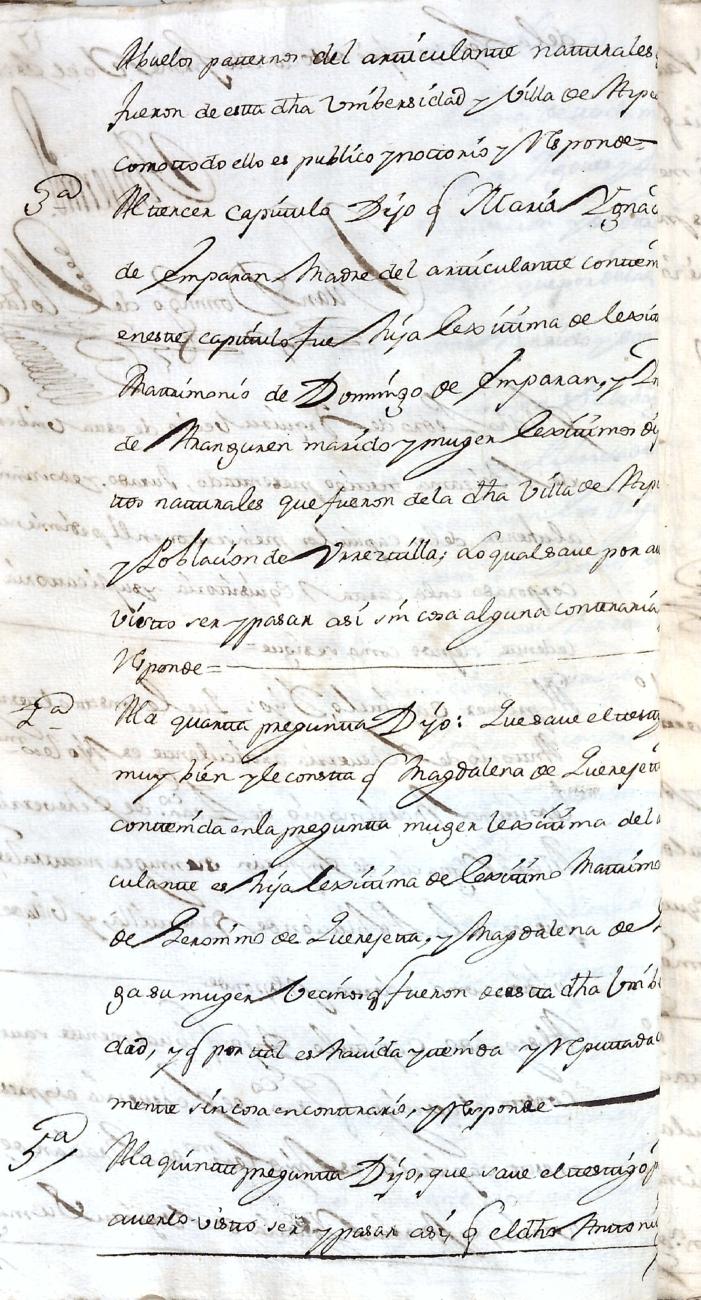 Abuelos paternos del articulante naturales
fueron de esta dha Vnibersidad y Villa de Azpe
comottodo ello es publico ynottorio y Responde
3ª Al tercer capitulo Dijo q Maria Ygnac
de Emparan Madre del articulante conten
eneste capitulo fue hija lexitima de lexit
Mattrimonio de Domingo de Emparan, y
de Aranguren marido y muger lexitimos
ttos naturales que fueron dela dha Villa de Azpe
y Poblacion de Vrrestilla; Lo qual save por a
visto ser ypasar asi sin cosa alguna conttraria
Responde=
4ª Ala quarta pregunta Dijo: Que save el testig
muy bien y le constta q Magdalena de Querejeta
contenida enla pregunta muger lexitima del
culante es hija lexitima de lexitimo Mattrimo
de Geronimo de Querejeta, y Magdalena de
ga su muger Vecinos q fueron de esta dha Vnibe
dad, y q por tal es havida ytenida y Reputtada
mente sin cosa encontrario, y Responde
5ª Ala quinta pregunta Dijo, que save el testigo p
averlo visto ser ypasar asi, q el dho Antoni